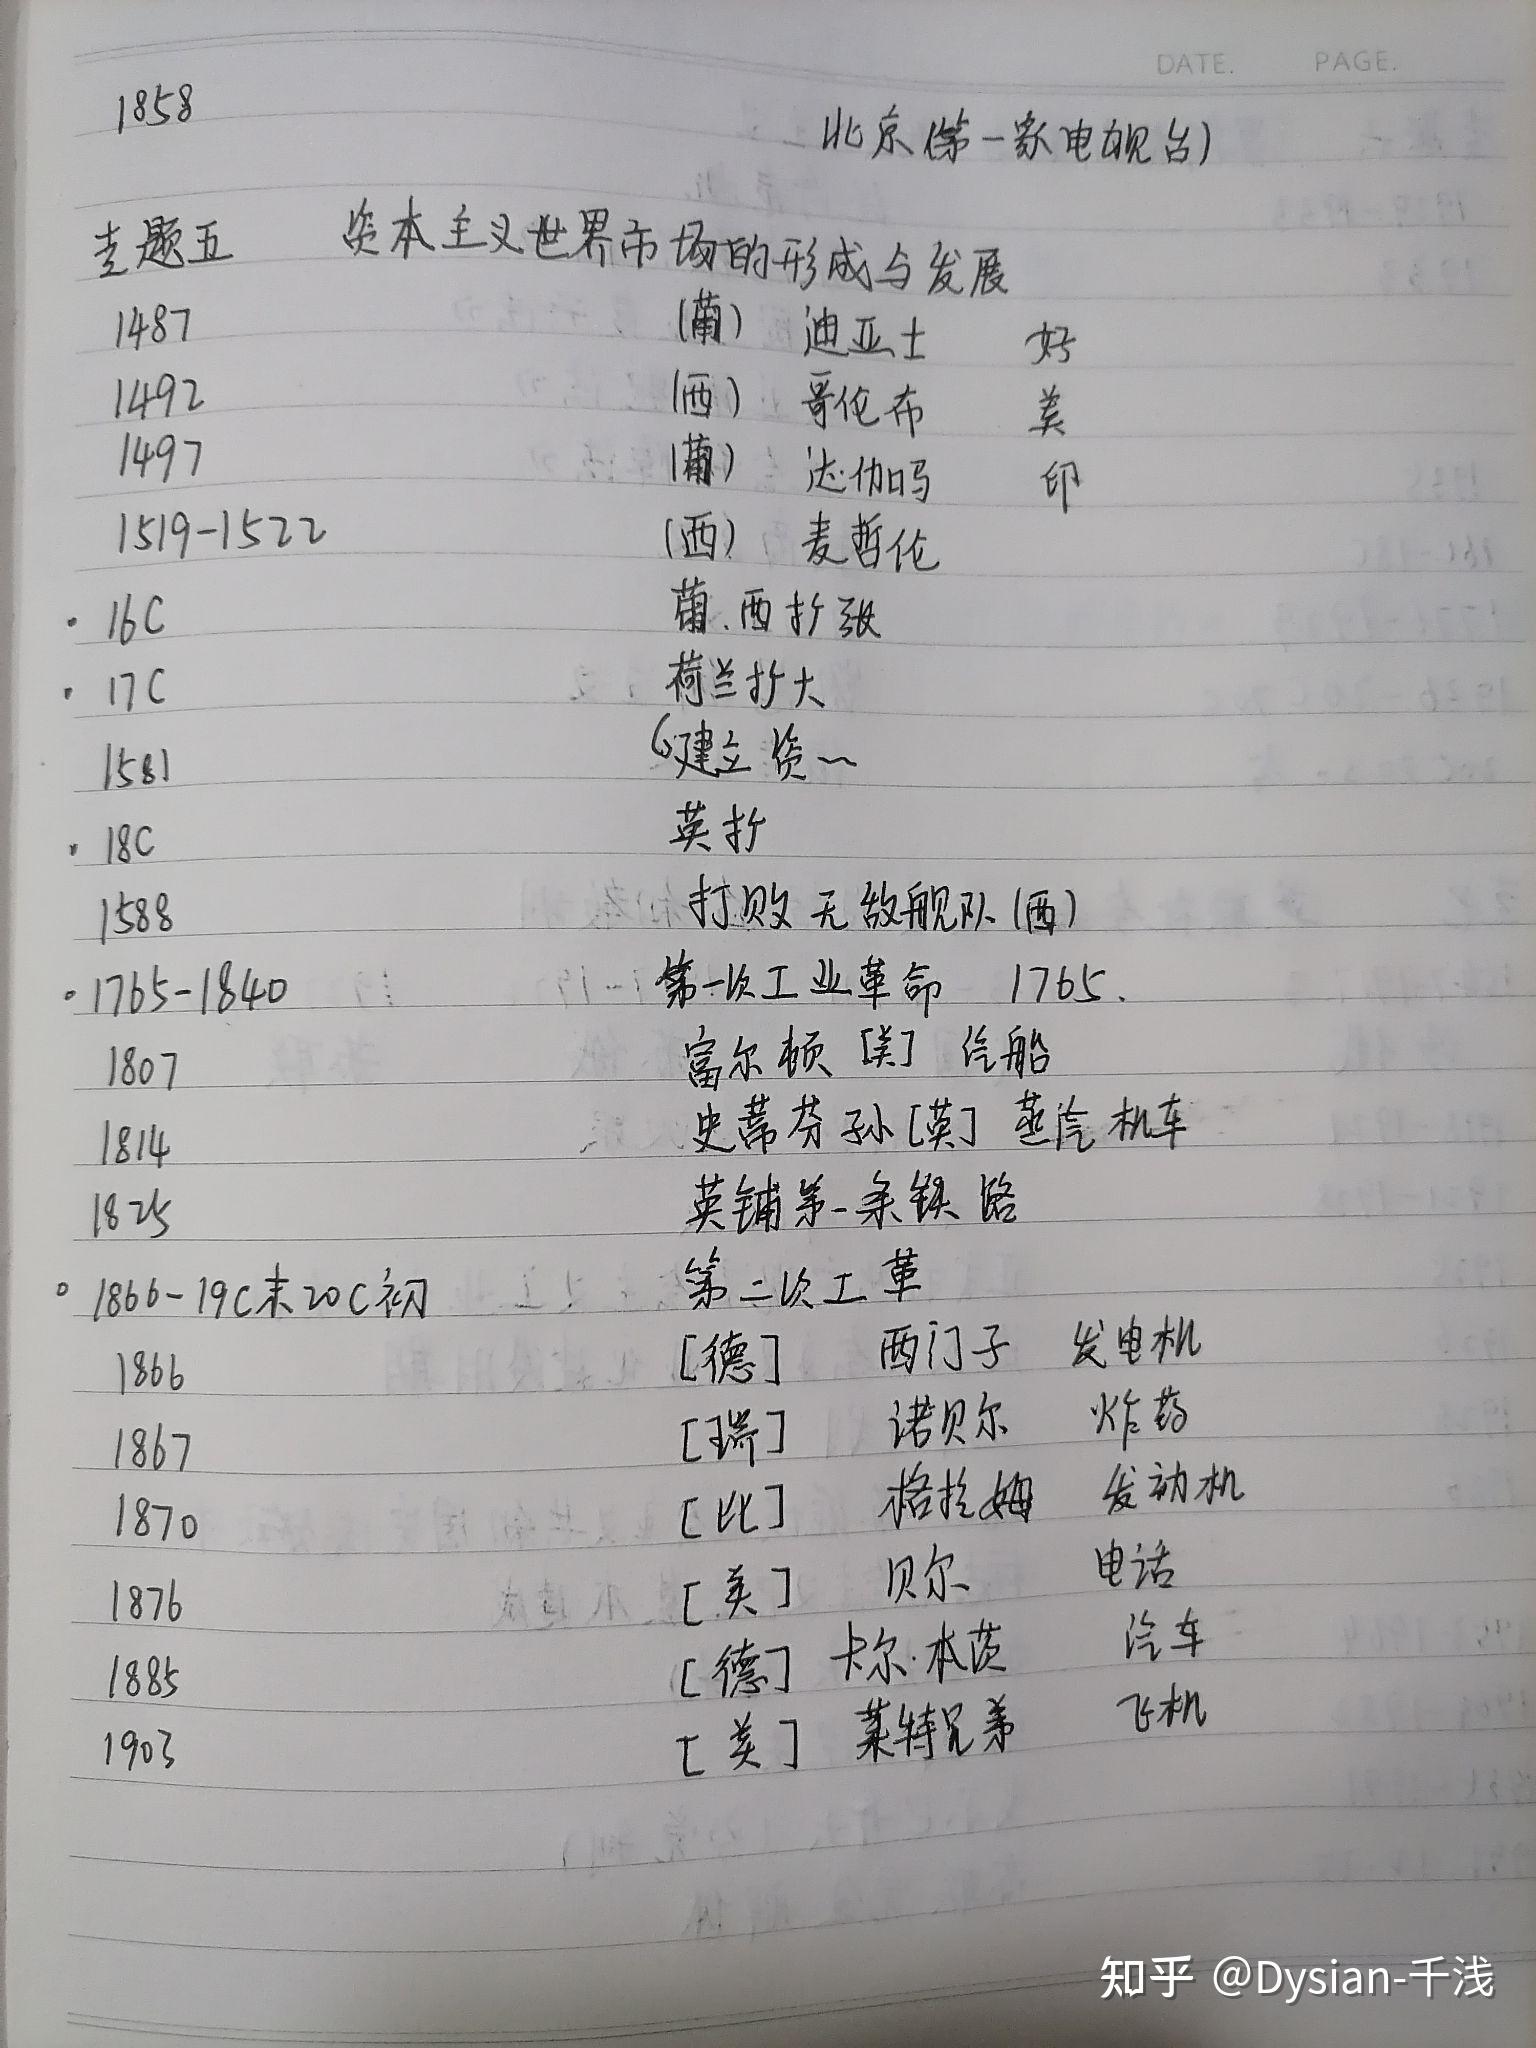 DATE. PAGE.
1858 北京(第一家电视台)
专题五 资本主义世界市场的形成与发展
1487 (葡) 迪亚士 好
1492 (西) 哥伦布 美
1497 (葡) 达·伽马 印
1519-1522 (西) 麦哲伦
· 16C 葡.西扩张
· 17C 荷兰扩大
1581 建立资~
· 18C 英扩
1588 打败无敌舰队(西)
· 1765-1840 第一次工业革命 1765.
1807 富尔顿 [美] 汽船
1814 史蒂芬孙 [英] 蒸汽机车
1825 英铺第一条铁路
。1866-19C末20C初 第二次工革
1866 [德] 西门子 发电机
1867 [瑞] 诺贝尔 炸药
1870 [比] 格拉姆 发动机
1876 [美] 贝尔 电话
1885 [德] 卡尔·本茨 汽车
1903 [美] 莱特兄弟 飞机
知乎 @Dysian-千浅